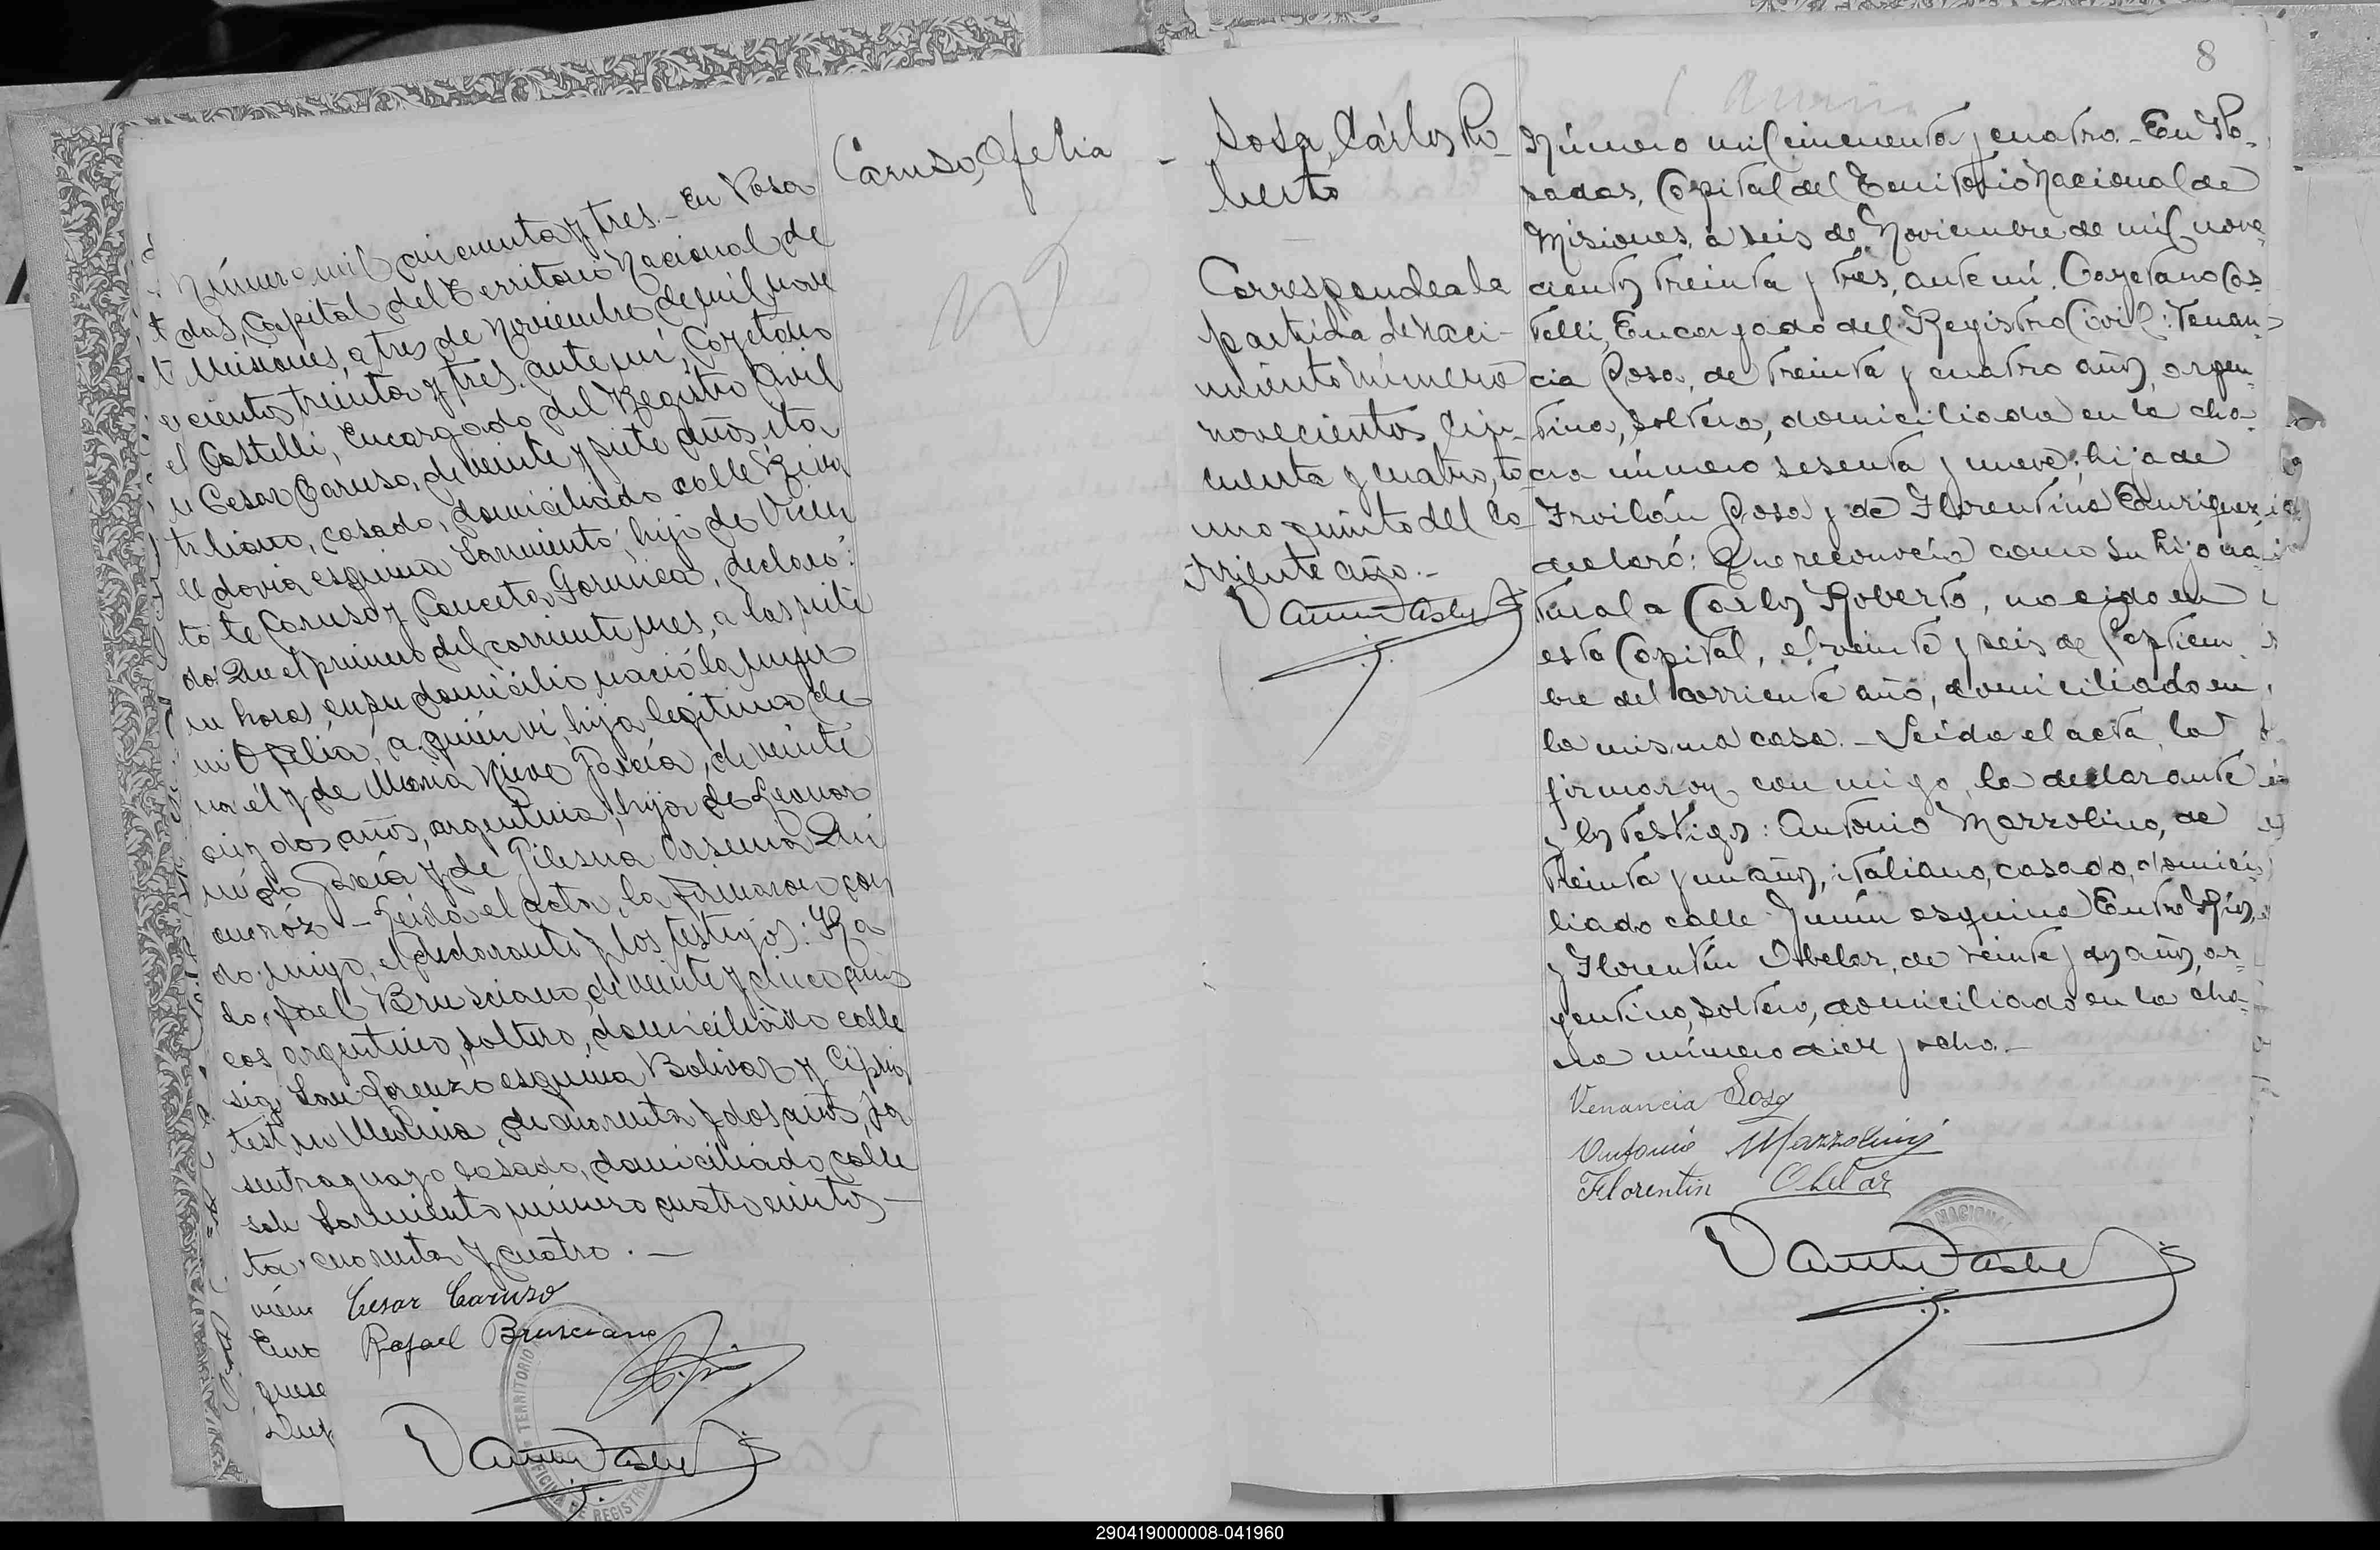 Caruso, Ofelia
Número mil cincuenta y tres.- En Posa
das, Capital del Territorio Nacional de
Misiones, a tres de Noviembre de mil nove
cientos treinta y tres. ante mí, Cayetano
Castelli, Encargado del Registro Civil
Cesar Caruso, de veinte y siete años, ita
liano, casado, domiciliado calle Riva
davia esquina Sarmiento, hijo de Vicen
te Caruso y Conceta, declaró:
Que el primero del corriente mes, a las siete
horas, en su domicilio nació la mujer
Ofelia, a quién ví, hija legítima de
él y de Maria Nieve García, de veinte
y dos años, argentina, hija de Leonar
do García y de
- Leída el acta, la firmaron con
migo, el declarante y los testigos: Ra
fael Brusciano, de veinte y cinco años
argentino, soltero, domiciliado calle
San Lorenzo esquina Bolivar y Cipria
no Medina, de cuarenta y dos años, pa
raguayo, casado, domiciliado calle
Sarmiento número cuatrocientos
cuarenta y cuatro.-
Cesar Caruso
Rafael Brusciano
8
Sosa, Cárlos Ro-
berto
Corresponde a la
partida de naci-
miento número
novecientos cin-
cuenta y cuatro, to
mo quinto del co
rriente año.-
Número mil cincuenta y cuatro.- En Po-
sadas, Capital del Territorio Nacional de
Misiones, a seis de Noviembre de mil nove-
cientos treinta y tres, ante mí. Cayetano Cas-
telli, Encargado del Registro Civil: Venan-
cia Sosa, de treinta y cuatro años, argen-
tina, soltera, domiciliada en la cha-
cra número sesenta y nueve; hija de
Froilán Sosa y de Florentina Enriquez,
declaró: Que reconocía como su hijo na-
tural a Carlos Roberto, nacido en
esta Capital, el veinte y seis de Septiem-
bre del corriente año, domiciliado en
la misma casa.- Leída el acta, la
firmaron con migo, la declarante
y los testigos: Antonio Mazzolino, de
treinta y un años, italiano, casado, domici-
liado calle Junín esquina Entre Ríos,
y Florentín Obelar, de veinte y dos años, ar-
gentino, soltero, domiciliado en la cha-
cra número diez y ocho.-
Venancia Sosa
Antonio Mazzolini
Florentin Obelar
NACIONAL
TERRITORIO
OFICINA DE REGISTRO
290419000008-041960